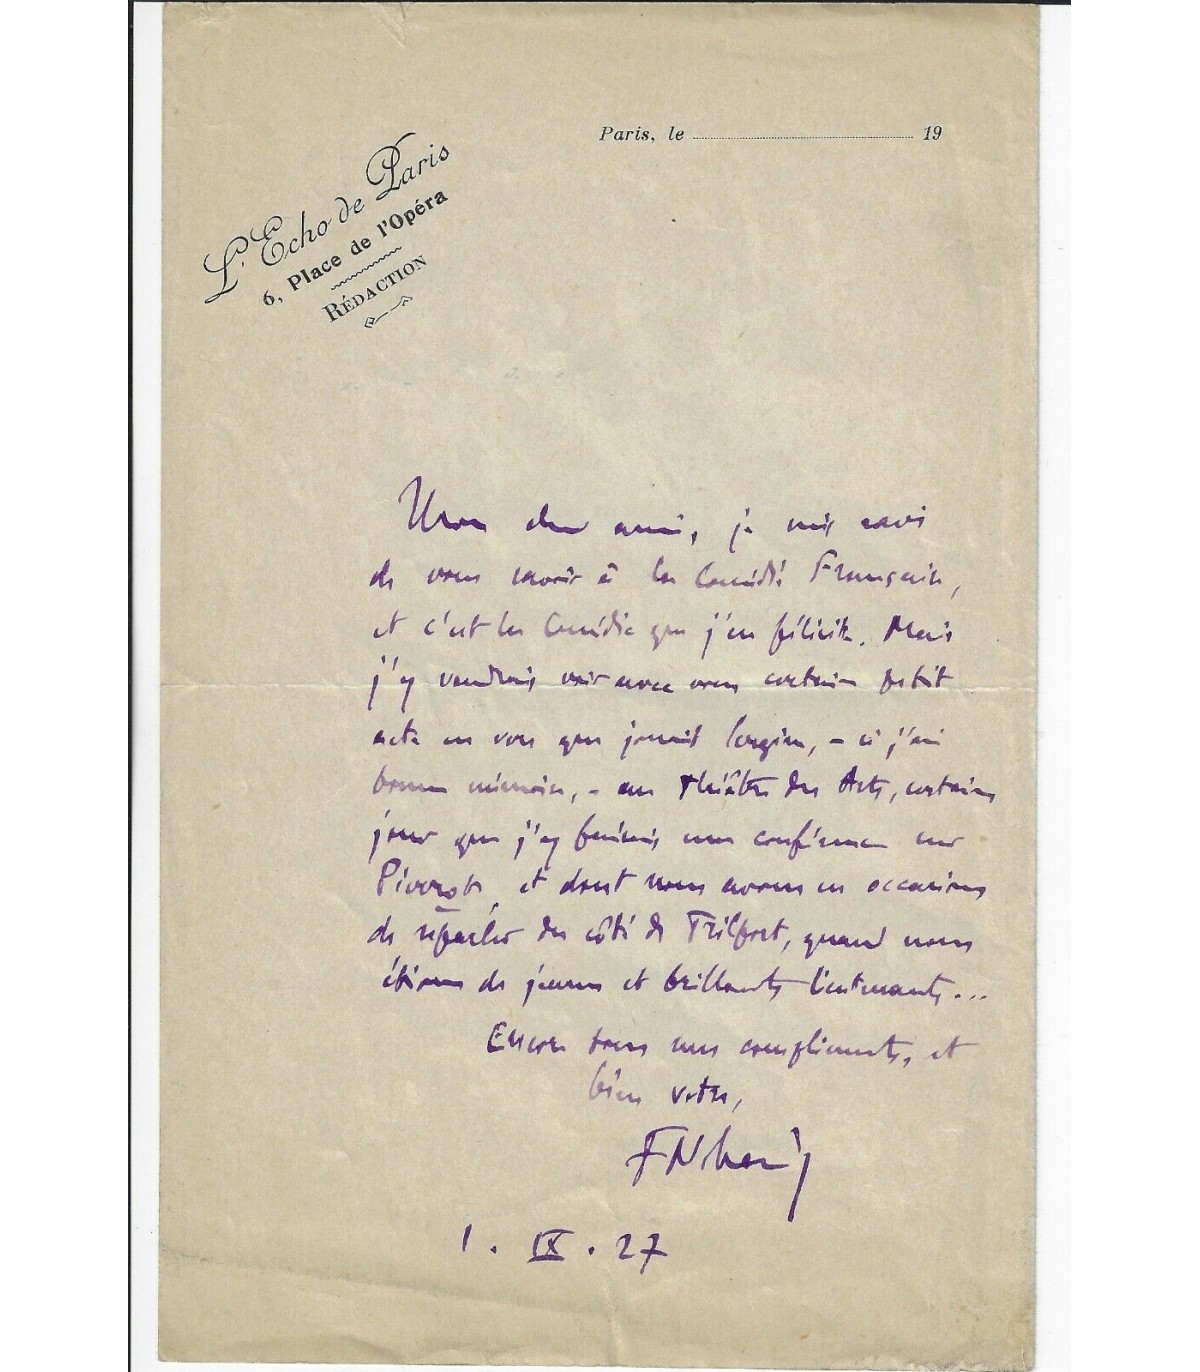 Paris, le ........................ 19
L'Echo de Paris
6, Place de l'Opéra
RÉDACTION
Mon cher ami, je suis ravi
de vous savoir à la Comédie Française,
et c'est la Comédie que j'en félicite. Mais
j'y voudrais voir avec vous certain petit
acte en vers que jouait,  – si j'ai
bonne mémoire, – au Théâtre des Arts, certain
jour que j'y faisais une conférence sur
Pierrot, et dont nous avons eu occasion
de reparler du côté de Trilport, quand nous
étions de jeunes et brillants lieutenants...
Encore tous mes compliments, et
bien votre,
1 . IX . 27